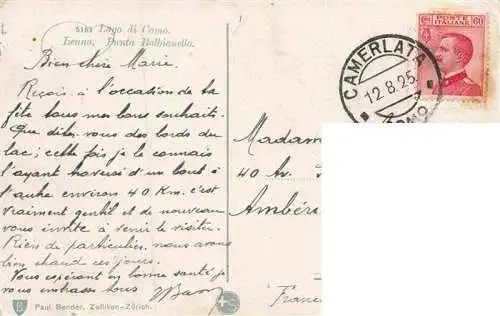 5162 Lago di Como.
Lenno. Punta Balbianello.
Bien chère Marie.
Reçois à l'occasion de ta
fête tous mes bons souhaits.
Que dites-vous des bords du
lac; cette fois je le connais
l'ayant traversé d'un bout à
l'autre environ 40 Km. c'est
vraiment gentil et de nouveau
vous invite à venir le visiter.
Rien de particulier, nous avons
bien chaud ces jours.
Vous espérant en bonne santé je
vous embrasse tous
Madam
40 Av.
Ambéri
Franc
CAMERLATA
12.8.25
COMO
POSTE
ITALIANE
60
B
Paul Bender, Zollikon-Zürich.